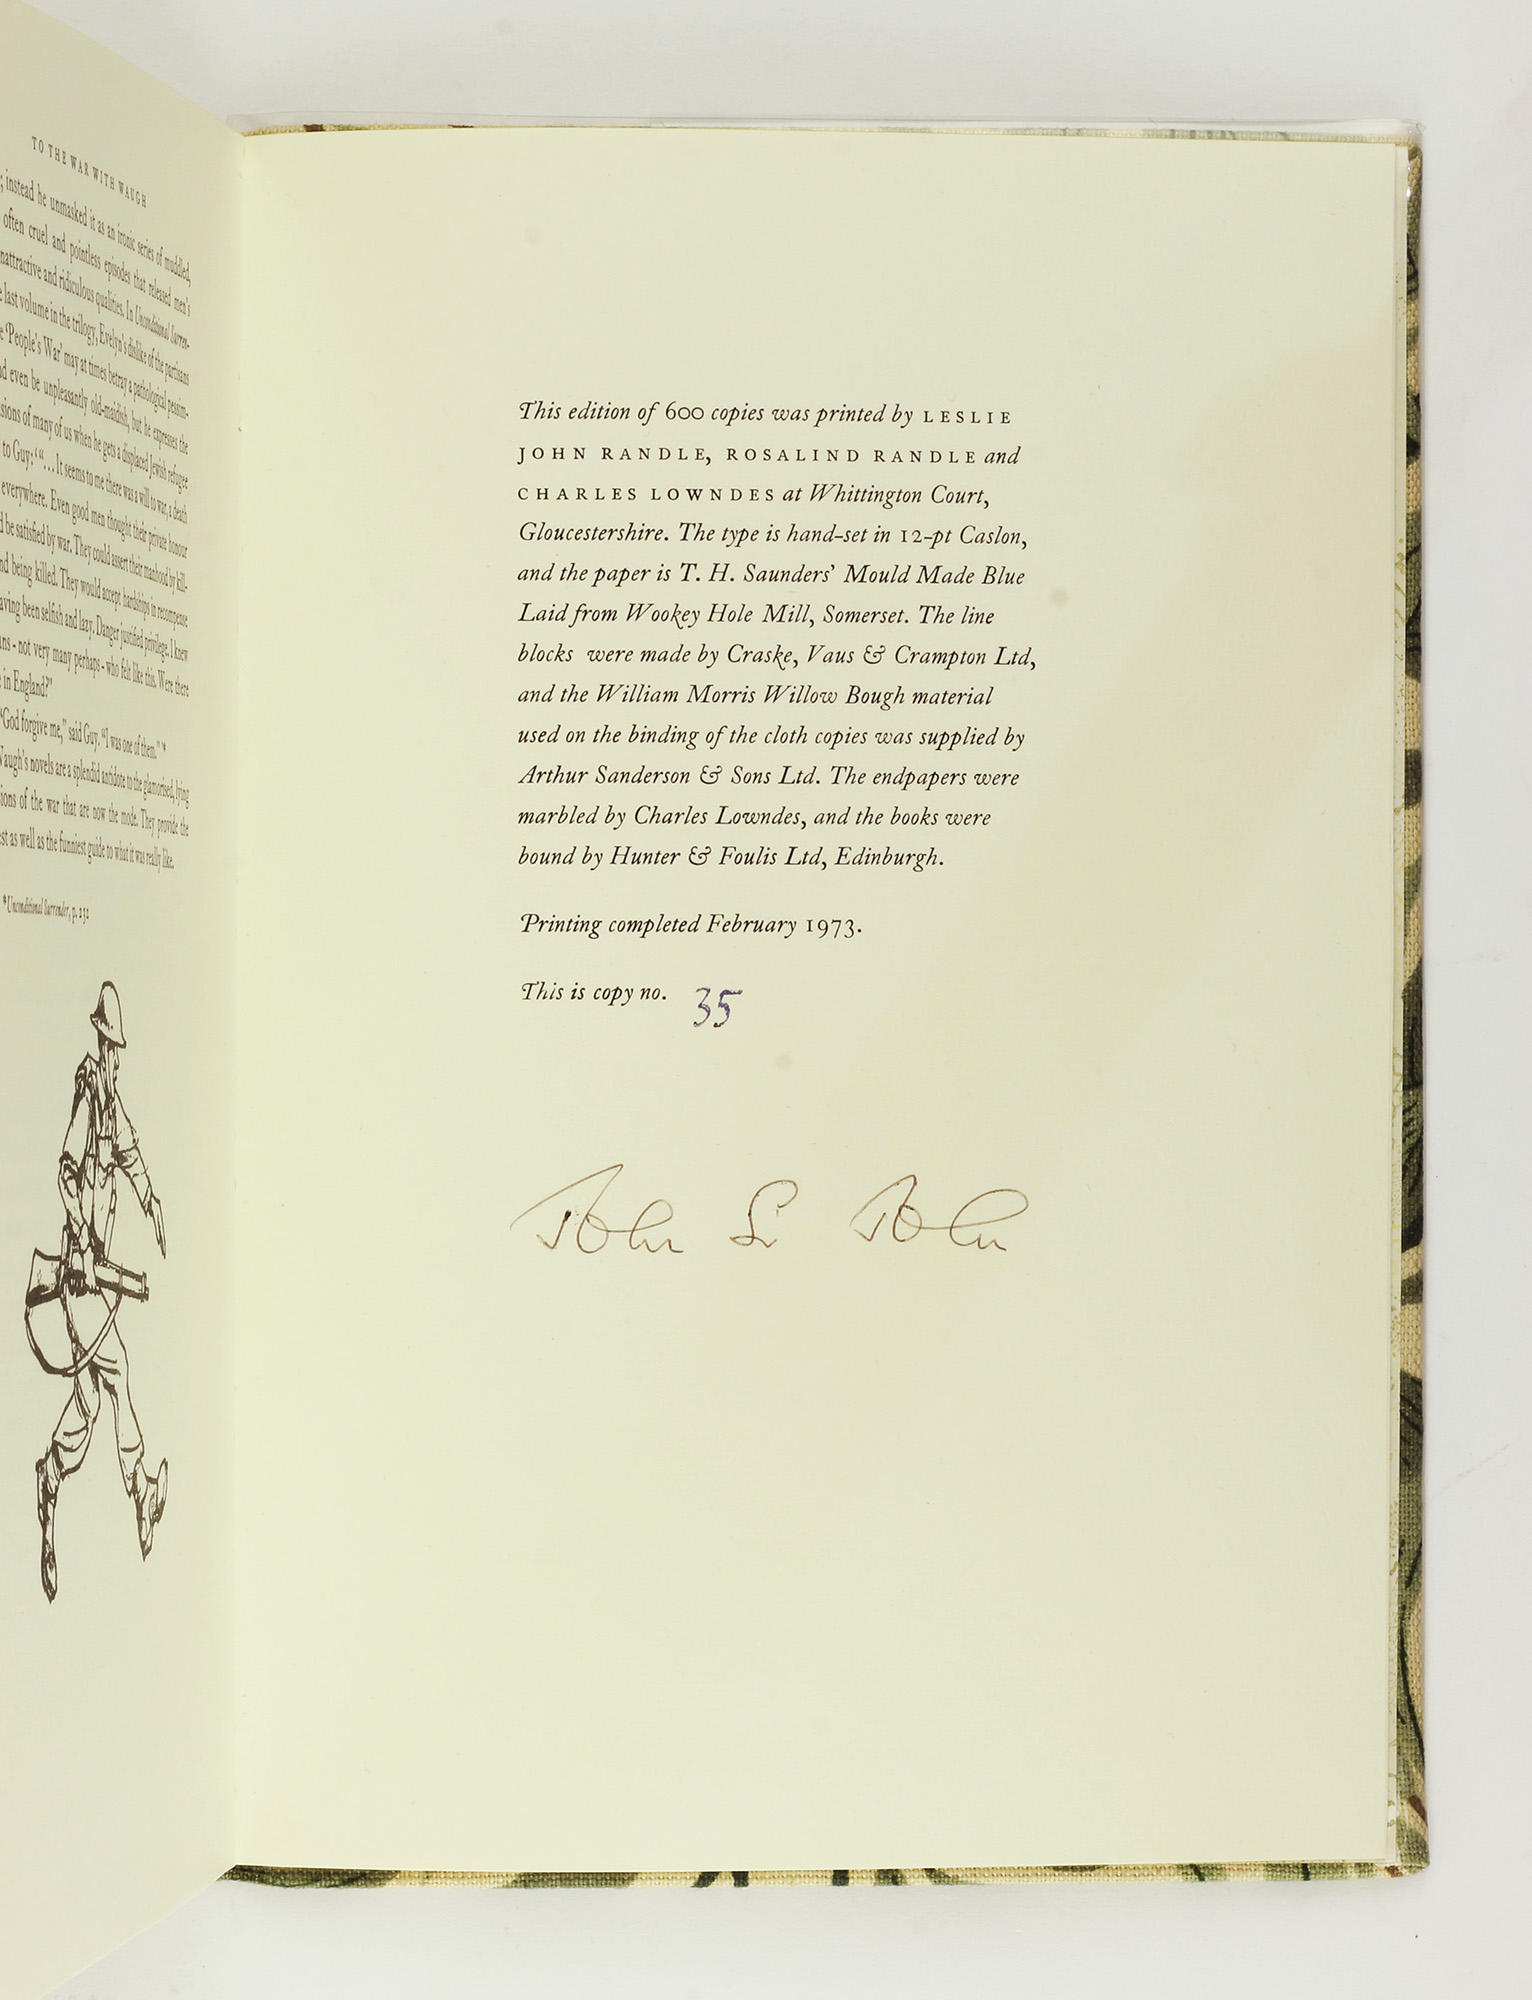 TO THE WAR WITH WAUGH
; instead he unmasked it as an ironic series of muddled,
often cruel and pointless episodes that released men's
nattractive and ridiculous qualities. In Unconditional Surren-
last volume in the trilogy, Evelyn's dislike of the partisans
'People's War' may at times betray a pathological pessim-
d even be unpleasantly old-maidish, but he expresses the
sions of many of us when he gets a displaced Jewish refugee
to Guy: ' "... It seems to me there was a will to war, a death
everywhere. Even good men thought their private honour
d be satisfied by war. They could assert their manhood by kill-
nd being killed. They would accept hardships in recompense
aving been selfish and lazy. Danger justified privilege. I knew
ans - not very many perhaps - who felt like this. Were there
in England?"
"God forgive me," said Guy. "I was one of them." '*
Waugh's novels are a splendid antidote to the glamorised, lying
ions of the war that are now the mode. They provide the
st as well as the funniest guide to what it was really like.
*Unconditional Surrender, p. 232
This edition of 600 copies was printed by LESLIE
JOHN RANDLE, ROSALIND RANDLE and
CHARLES LOWNDES at Whittington Court,
Gloucestershire. The type is hand-set in 12-pt Caslon,
and the paper is T. H. Saunders' Mould Made Blue
Laid from Wookey Hole Mill, Somerset. The line
blocks were made by Craske, Vaus & Crampton Ltd,
and the William Morris Willow Bough material
used on the binding of the cloth copies was supplied by
Arthur Sanderson & Sons Ltd. The endpapers were
marbled by Charles Lowndes, and the books were
bound by Hunter & Foulis Ltd, Edinburgh.
Printing completed February 1973.
This is copy no. 35
John St John